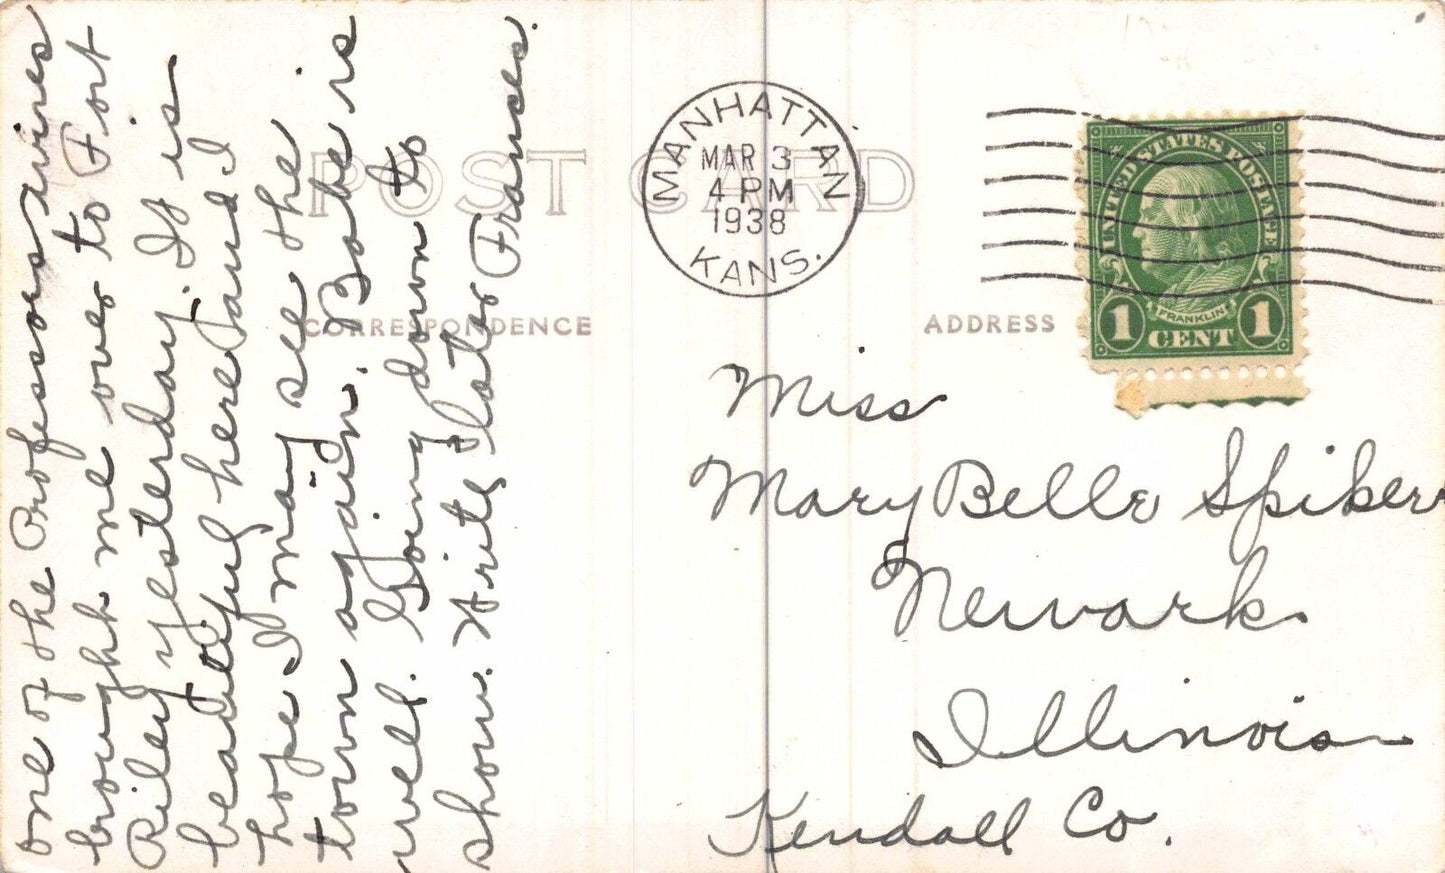 one of the Professors wives
brought me over to Fort
Riley yesterday. It is
beautiful here and I
hope I may see the
town again. Babe is
well. Going down to
show. Write later Frances.
POST CARD
CORRESPONDENCE
ADDRESS
MANHATTAN
MAR 3
4 PM
1938
KANS.
UNITED STATES POSTAGE
FRANKLIN
1 CENT 1
Miss
Mary Belle Spiker
Newark
Illinois
Kendall Co.